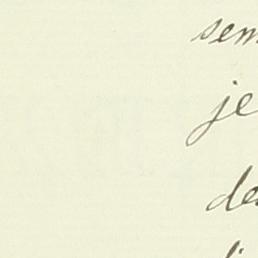 sem
je
de